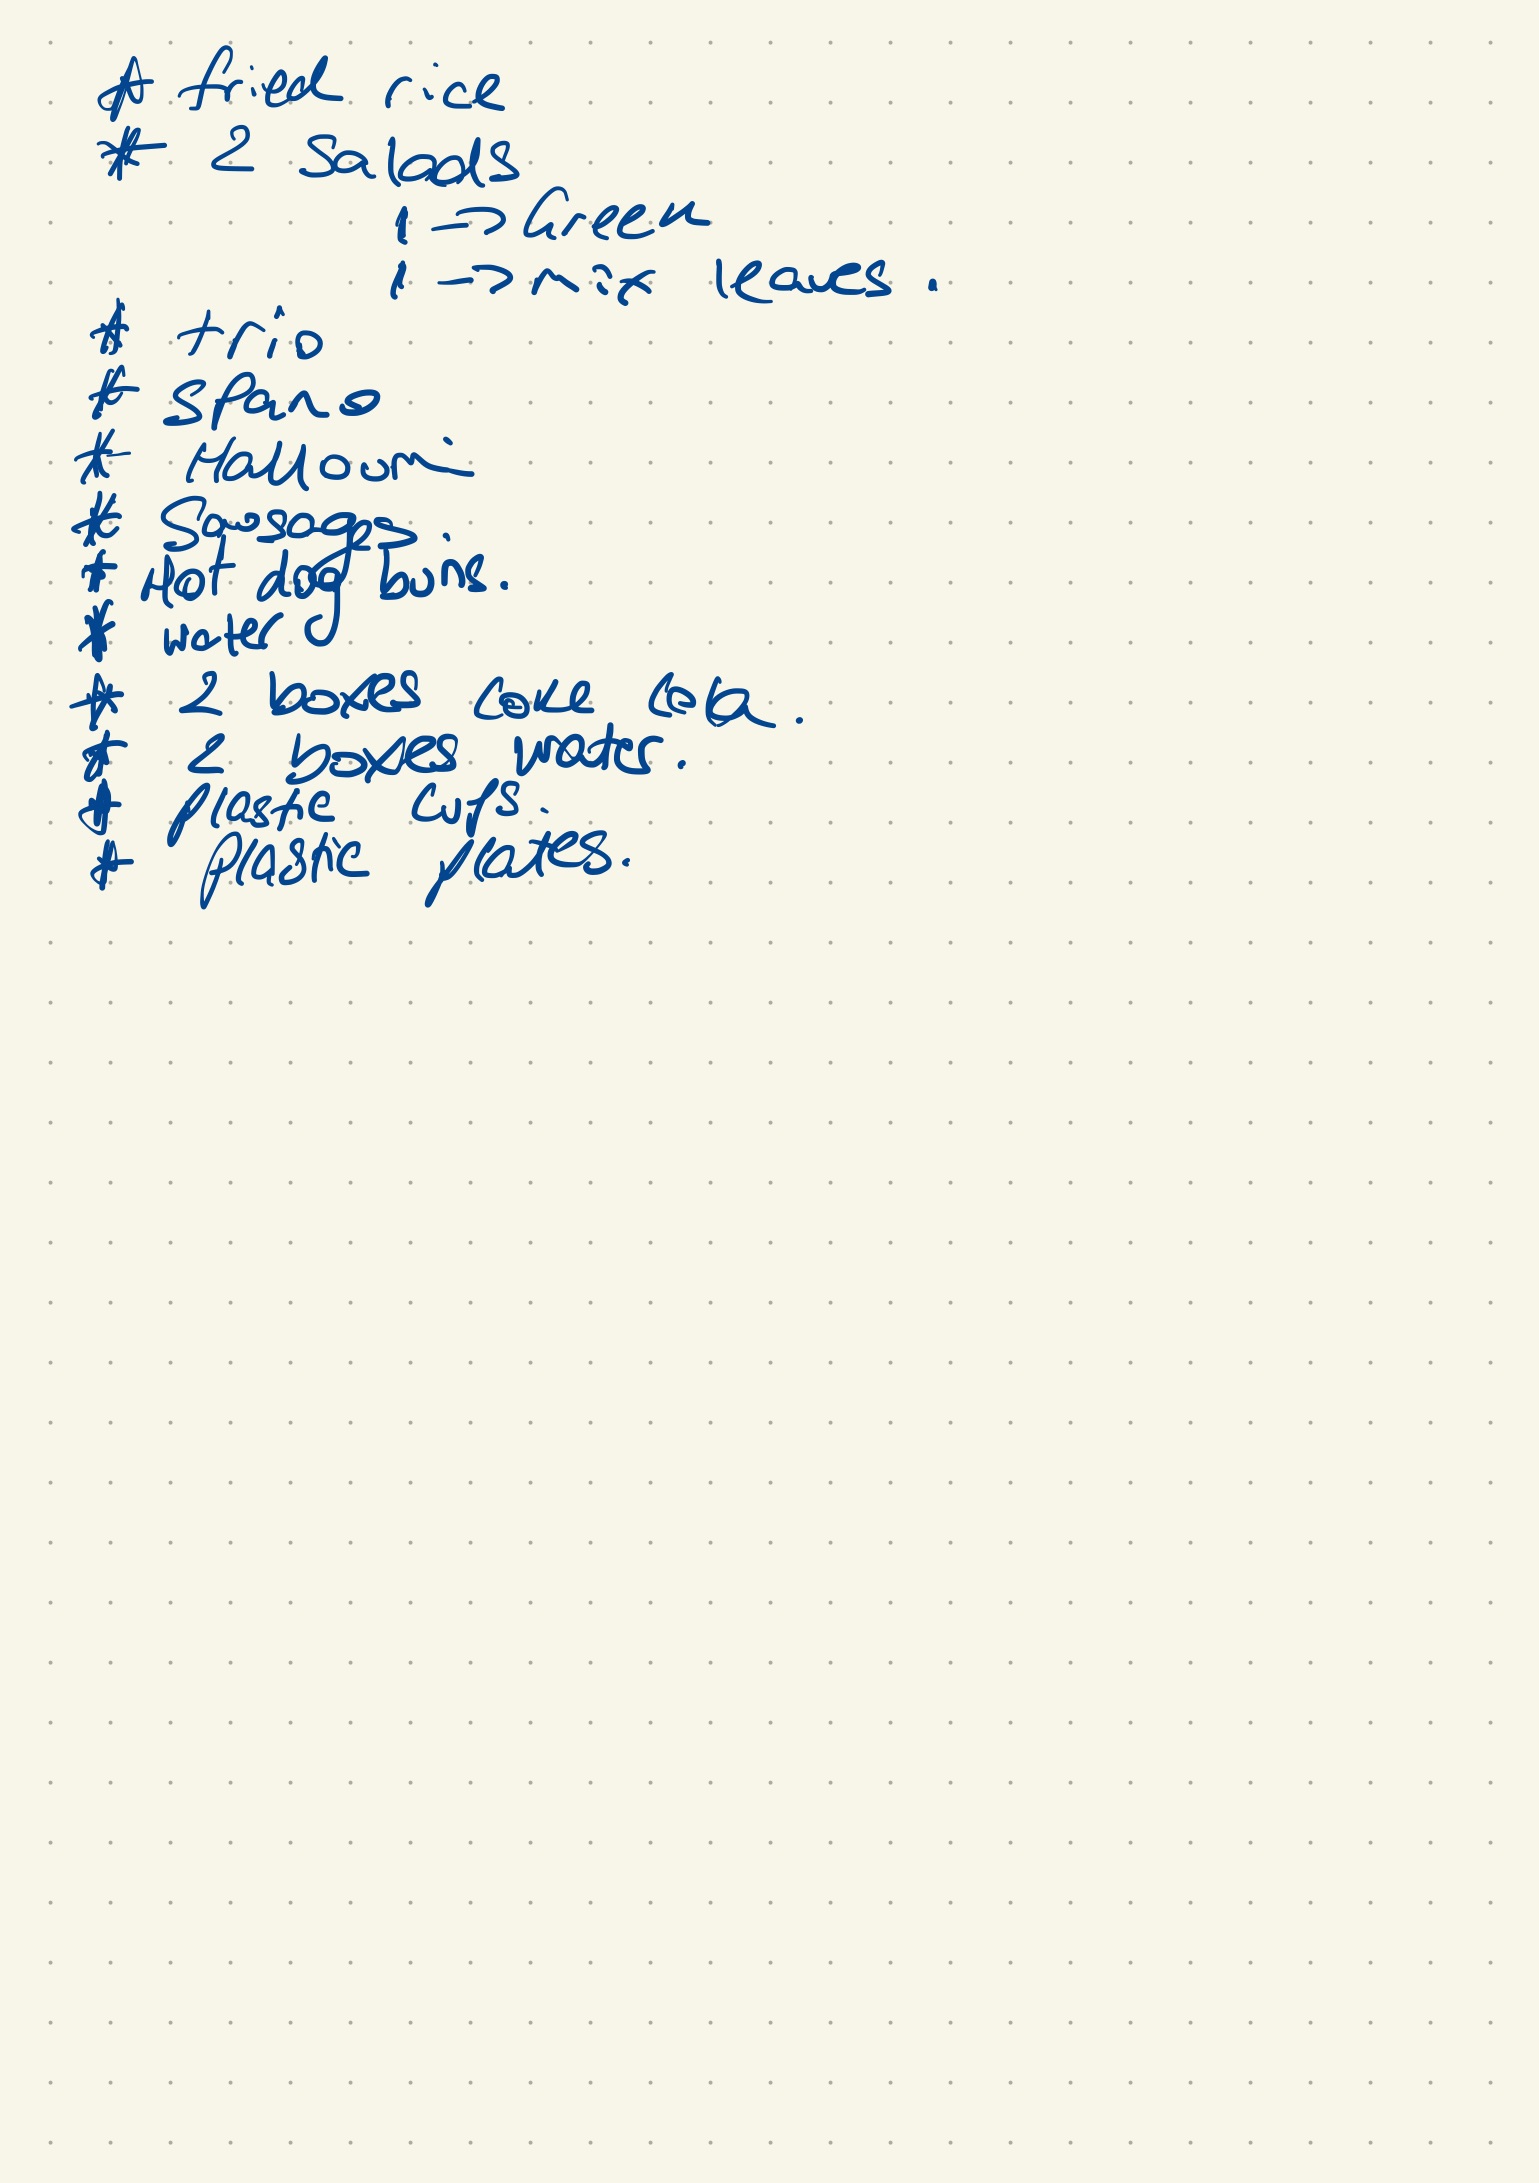 * fried rice
* 2 Salads
1 -> Green
1 -> mix leaves.
* trio
* Spano
* Halloumi
* Sausages.
* Hot dog buns.
* water
* 2 boxes coke cola.
* 2 boxes water.
* plastic cups.
* plastic plates.